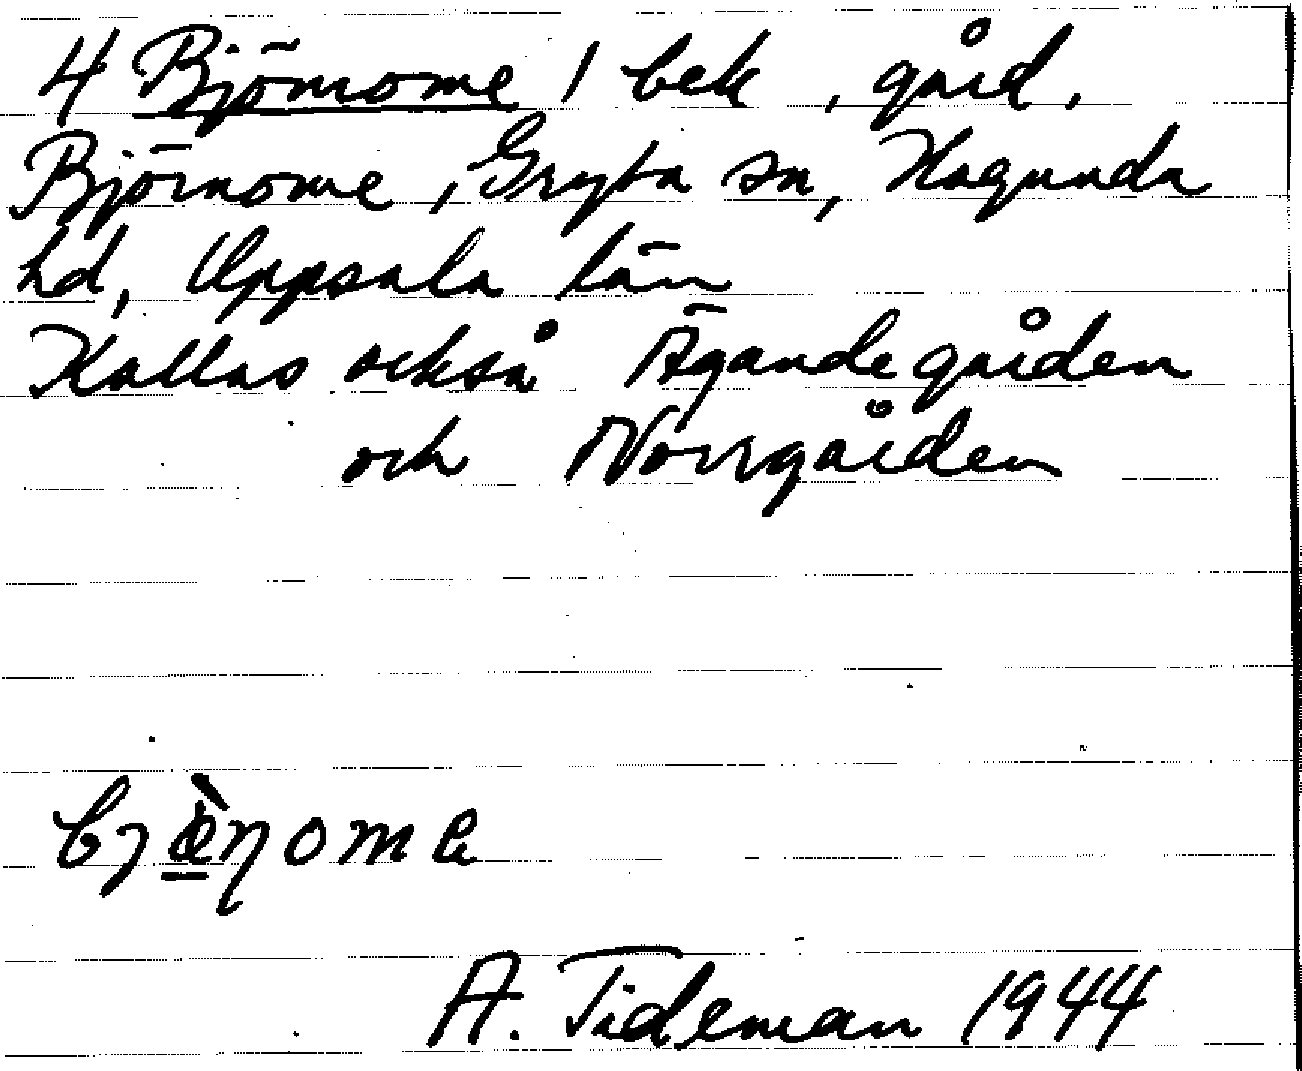 4 Björnome / bek, gård,
Björnome, Gryta sn, Hagunda
hd, Uppsala län
Kallas också Ägandegården
och Norrgården
A. Tideman 1944